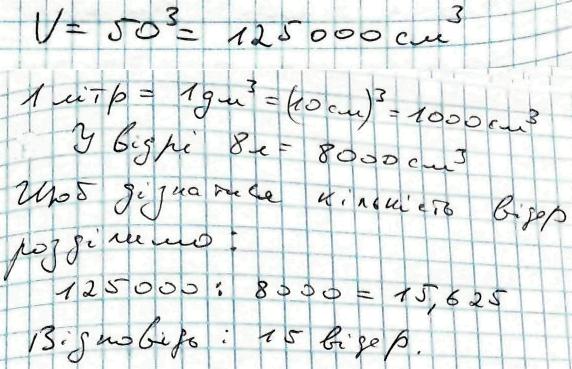 V = 50³ = 125000 см³
1 літр = 1 дм³ = (10 см)³ = 1000 см³
У відрі 8 л = 8000 см³
Щоб дізнатися кількість відер
розділимо :
125000 : 8000 = 15,625
Відповідь : 15 відер.